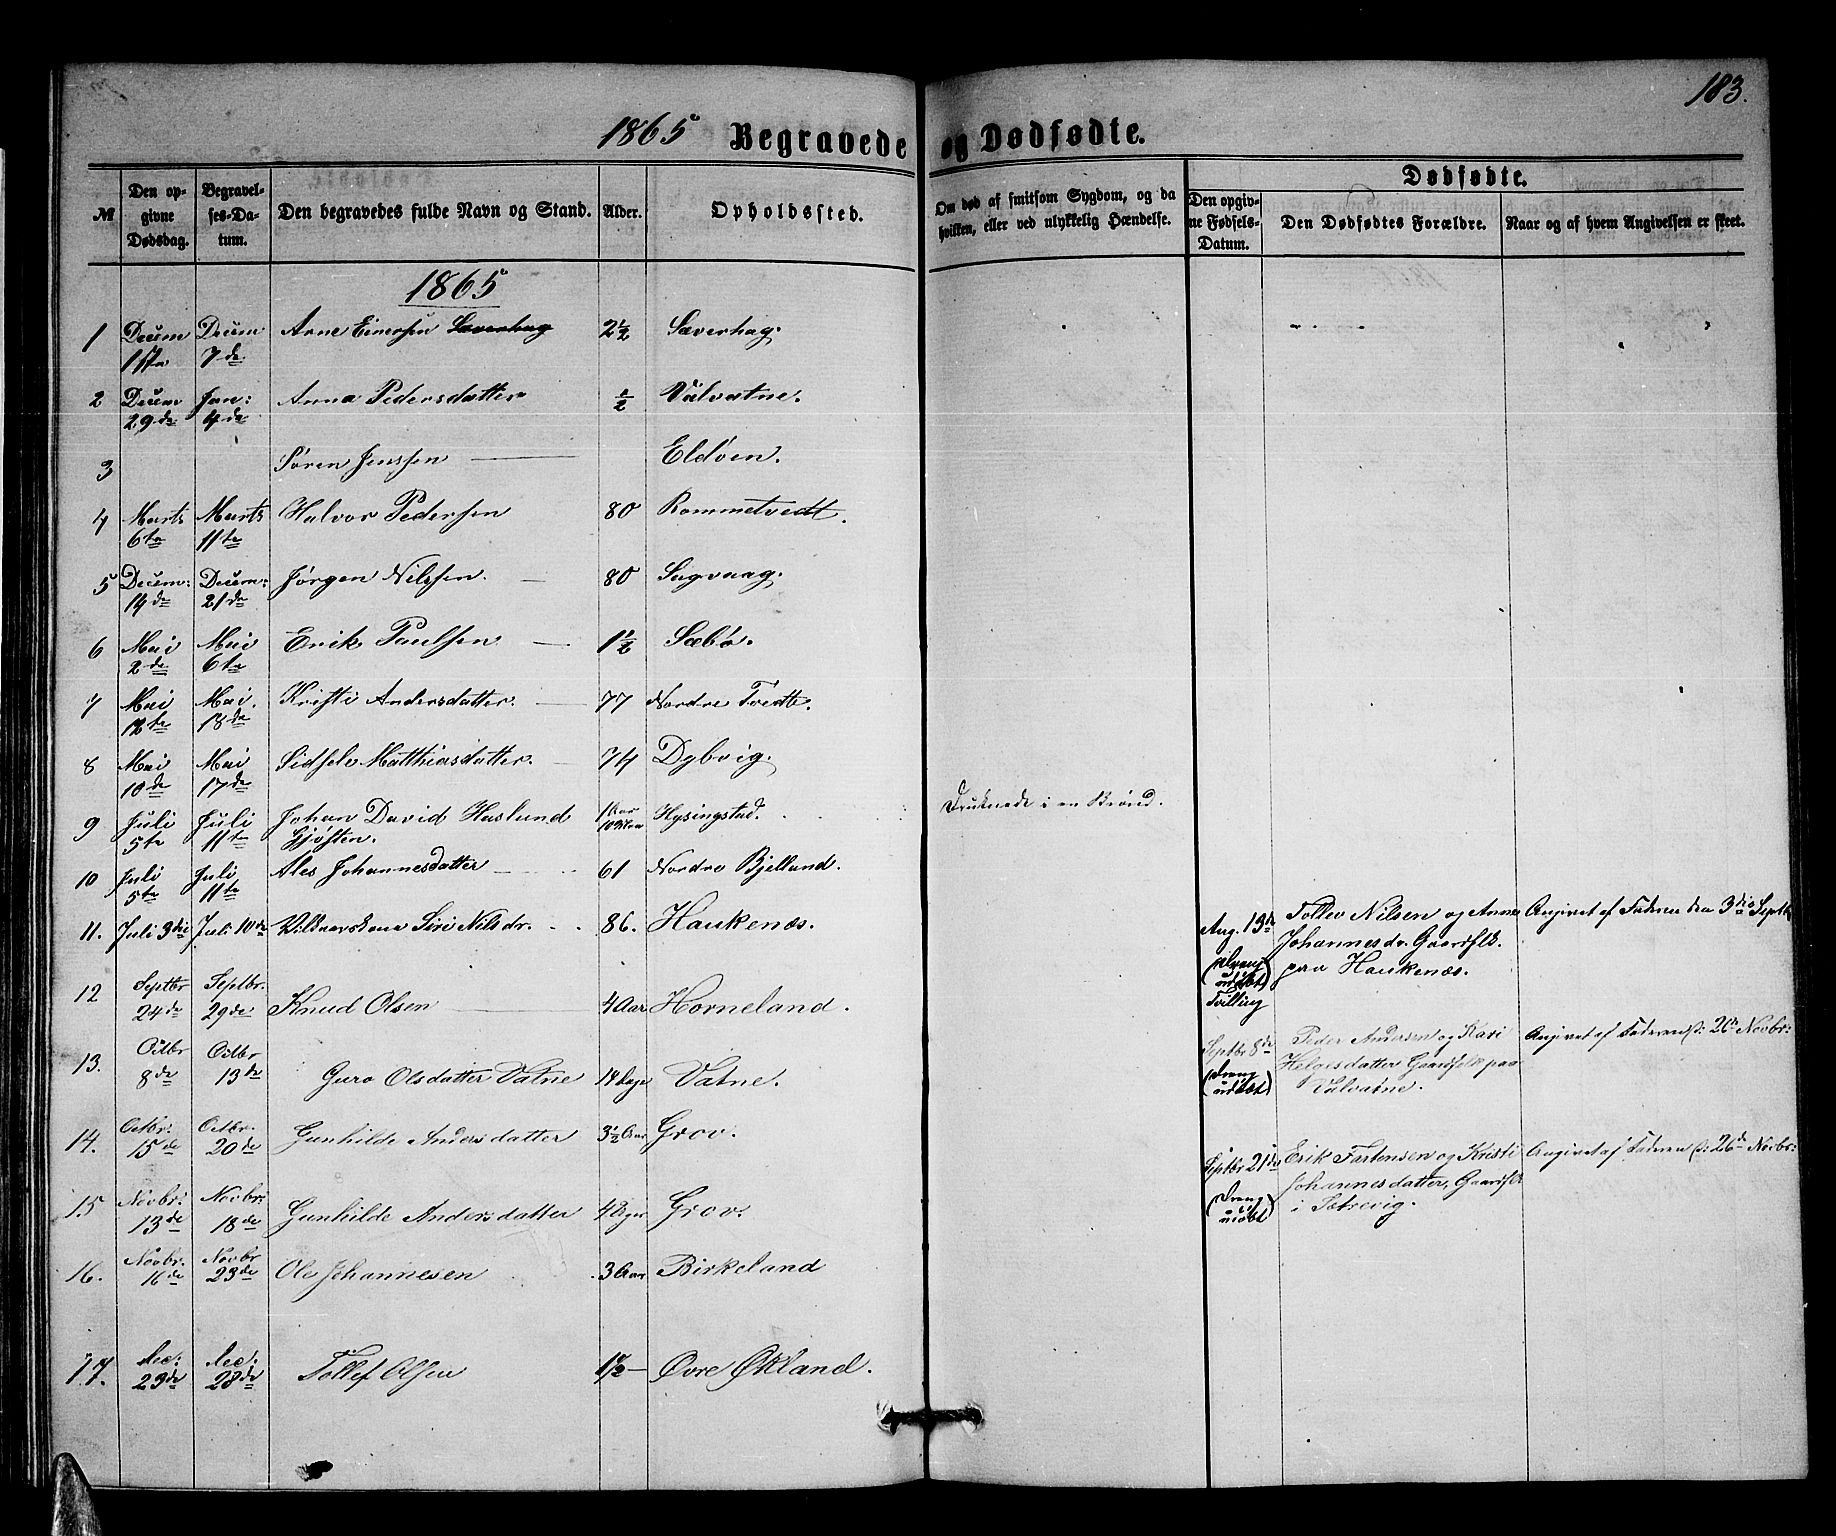 183.
1865 Begravede og Dødfødte.
№ Den opgivne Dødsdag. Begravelses-Datum. Den begravedes fulde Navn og Stand. Alder. Opholdssted. Om død af smitsom Sygdom, og da hvilken, eller ved ulykkelig Hændelse. Dødfødte. Den opgivne Fødsels-Datum. Den Dødfødtes Forældre. Naar og af hvem Angivelsen er skeet.
1865
1 Decem 1ste Decem 7de Arne Einersen Sæverhag 2½ Sæverhag.
2 Decem 29de Jan: 4de Anna Pedersdatter ½ Valvatne.
3 Søren Jenssen Eldøen.
4 Marts 6te Marts 11te Halvor Pedersen 80 Rommetvedt.
5 Decem: 14de Decem: 21de Jørgen Nilssen. 80 Sagvaag.
6 Mai 2de Mai 6te Erik Paulsen 1½ Sæbø.
7 Mai 12te Mai. 18de Kristi Andersdatter. 77 Nordre Tvedte.
8 Mai 10de Mai 17de Sidsele Matthiasdatter. 74 Dybvig.
9 Juli 5te Juli 11te Johan David Haslund Gjøsten. 1 Aar 10 Hysingstad. Druknede i en Brønd.
10 Juli 5te Juli 11te Ales Johannesdatter 61 Nordre Bjelland.
11. Juli 3die Juli 10de Siri Nilsdr. 86. Haukenæs.
Aug. 13de (Dreng udøbt) Tvilling Tollev Nilsen og Anne Johannesdr. Gaardflk. paa Haukenæs. Angivet af Faderen den 3die Septb
12 Septbr 24de Septbr. 29de Knud Olsen 4 Aar Horneland.
Septbr 8de (Dreng udøbt) Peder Andersen og Kari Helgesdatter Gaardfolk paa Valvatne. Angivet af Faderen d: 26de Novbr:
13. Octbr 8de Octbr 13de Guro Olsdatter Vatne 14 Dage Vatne.
14. Octbr: 15de Octbr. 20de Gunhilde Andersdatter 3½ Aar Grov.
Septbr 21de (Dreng udøbt) Erik Tartensen og Kristi Johannesdatter, Gaardflk i Sætrevig. Angivet af Faderen d: 26de Novbr:
15 Novbr: 13de Novbr: 18de Gunhilde Andersdatter 4 Dager Grov.
16. Novbr. 16de Novbr 23de Ole Johannesen 3 Aar Birkeland
17. Dec: 23de Dec: 28de Tollef Olsen 1½ Øvre Økland.